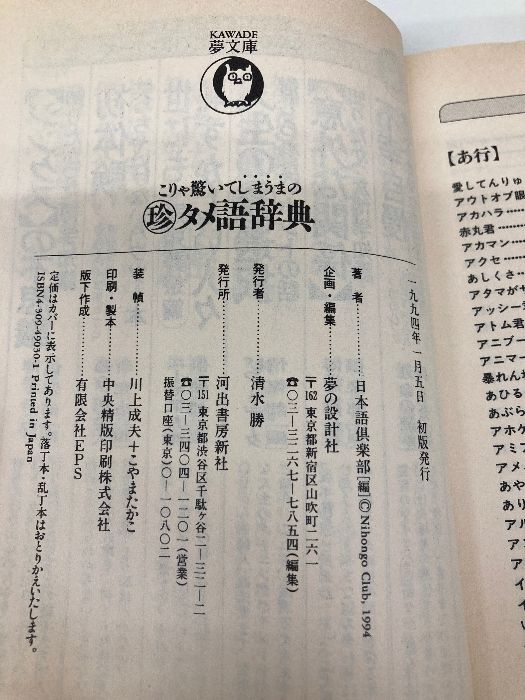 KAWADE
夢文庫
こりゃ驚いてしまうまの
㊙珍タメ語辞典
一九九四年一月五日 初版発行
著者………日本語倶楽部[編]©Nihongo Club, 1994
企画・編集………夢の設計社
〒162 東京都新宿区山吹町二六一
☎〇三―三二六七―七八五四(編集)
発行者………清水 勝
発行所………河出書房新社
〒151 東京都渋谷区千駄ヶ谷二―三二―二
☎〇三―三四〇四―一二〇一(営業)
振替口座(東京)〇―一〇八〇二
装幀………川上成夫+こやまたかこ
印刷・製本………中央精版印刷株式会社
版下作成………有限会社EPS
定価はカバーに表示してあります。落丁本・乱丁本はおとりかえいたします。
ISBN4-309-49030-1 Printed in Japan
【あ行】
愛してんりゅ
アウトオブ眼
アカハラ
赤丸君
アカマン
アクセ
あしくさ
アタマがサ
アッシー
アトム君
アニブー
アニマー
暴れんね
あひる
あぶら
アホケ
アミ
アメ
あや
あり
アル
ア
ア
イ